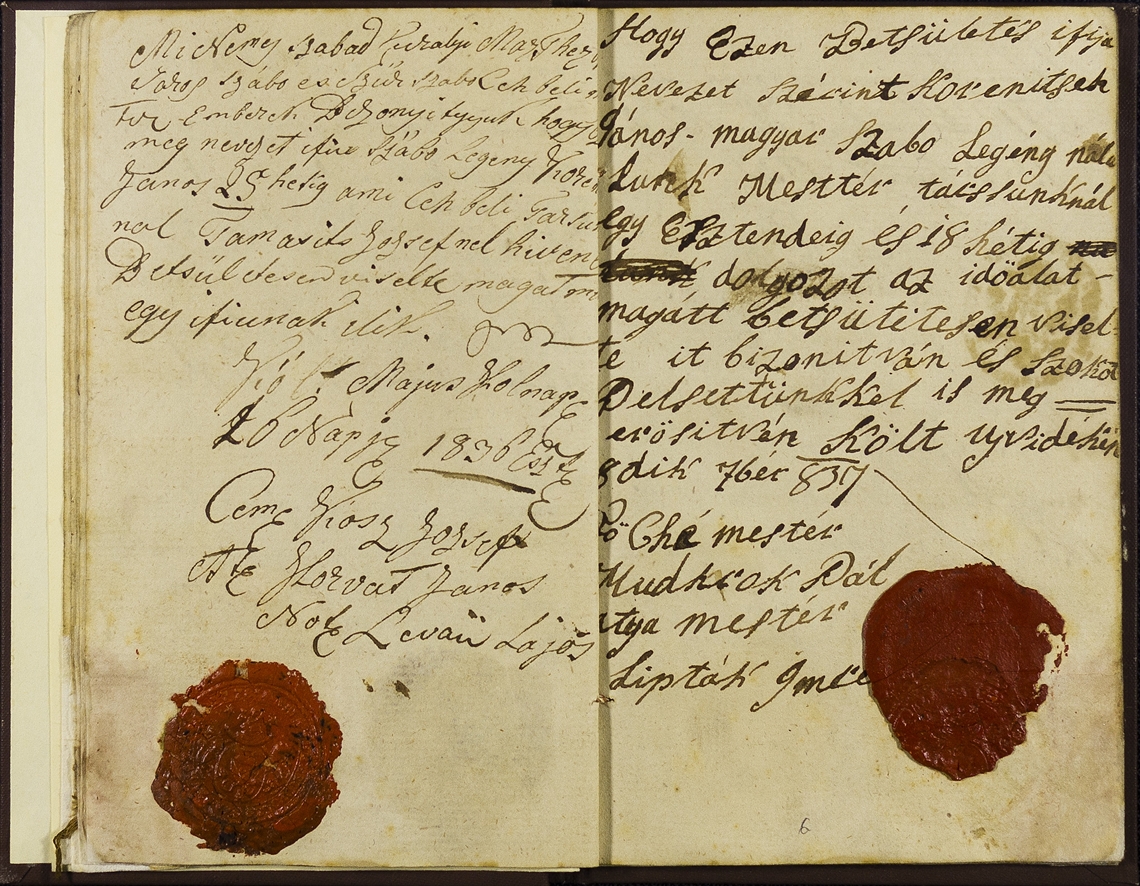 Mi Nemes Szabad Királyi
Város Szabo es Szür Szabo Cehbeli
Emberek Bizonyityyuk hogy
meg nevezet ifiu Szabo Legény
Janos 25 hetig ami Cehbeli Tarsunk
nal Tamasits Jozsefnel hiven
Betsületesen viselte magat
egy ifiunak ilik.
Költ Majus Holnap
26 Napja 1836
Cem Kosz Jozsef
AtE Horvat Janos
Not Levaii Lajos
Hogy Ezen Betsületés ifija
Nevezet Szérint Korenitseh
János - magyar Szabo Legéng nála
lunk Mesttér társsunknál
egy Esztendeig és 18 hétig
dolgozot az idöalat -
magátt betsütitesen visel
te it bizonitván és szokot
Pelsettünkkel is meg
erösitvén Költ ujvidékén
8dik 7bér 837
Fö Ché mestér
Mudhrok Pál
atya mestér
Lipták Imre
6